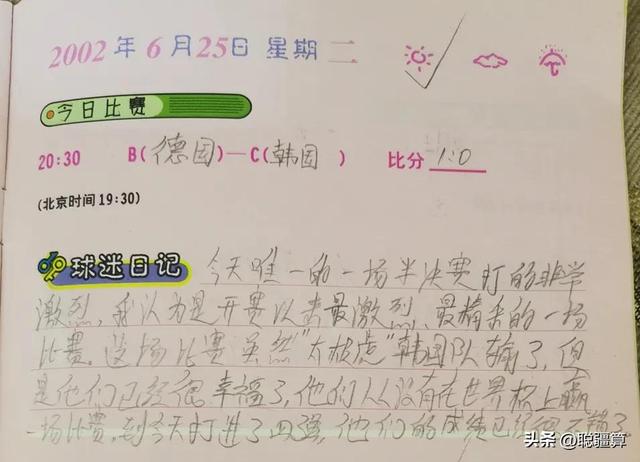 2002年6月25日 星期二
今日比赛
20:30 B(德国)—C(韩国) 比分1:0
(北京时间19:30)
球迷日记 今天唯一的一场半决赛打的非常
激烈，我认为是开赛以来最激烈、最精采的一场
比赛。这场比赛虽然"太极虎"韩国队输了，但
是他们已经很幸福了，他们从没有在世界杯上赢
一场比赛，到今天打进了四强，他们的成绩已经很不错了
头条 @聪疆算